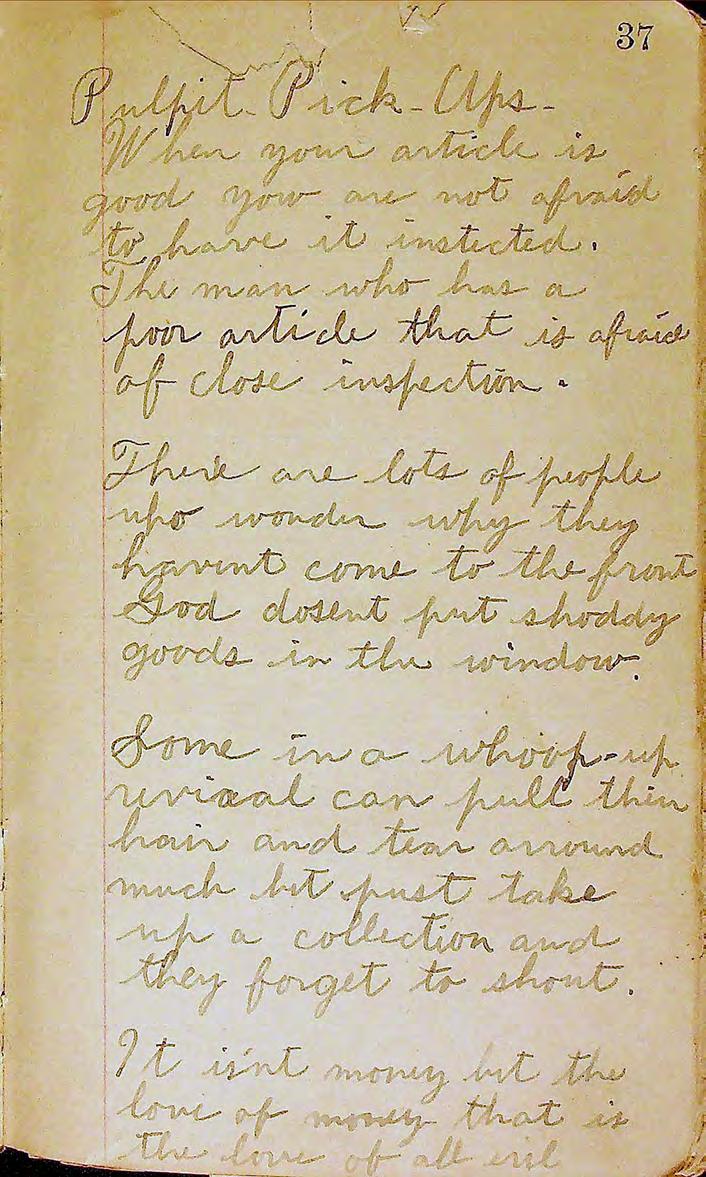 37
Pulpit-Pick-Ups-
When your article is
good you are not afraid
to have it instected.
The man who has a
poor article that is afraid
of close inspection.
There are lots of people
who wonder why they
havent come to the front
God dosent put shoddy
goods in the window.
Some in a whoop-up
revival can pull their
hair and tear arround
much but just take
up a collection and
they forget to shout.
It isn't money but the
love of money that is
the love of all evil